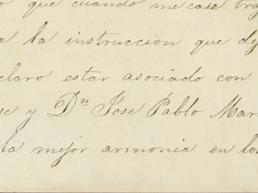 que cuando me case tra
a la instruccion que de
claro estar asociado con
se y Dn Jose Pablo Mar
la mejor armonia en lo